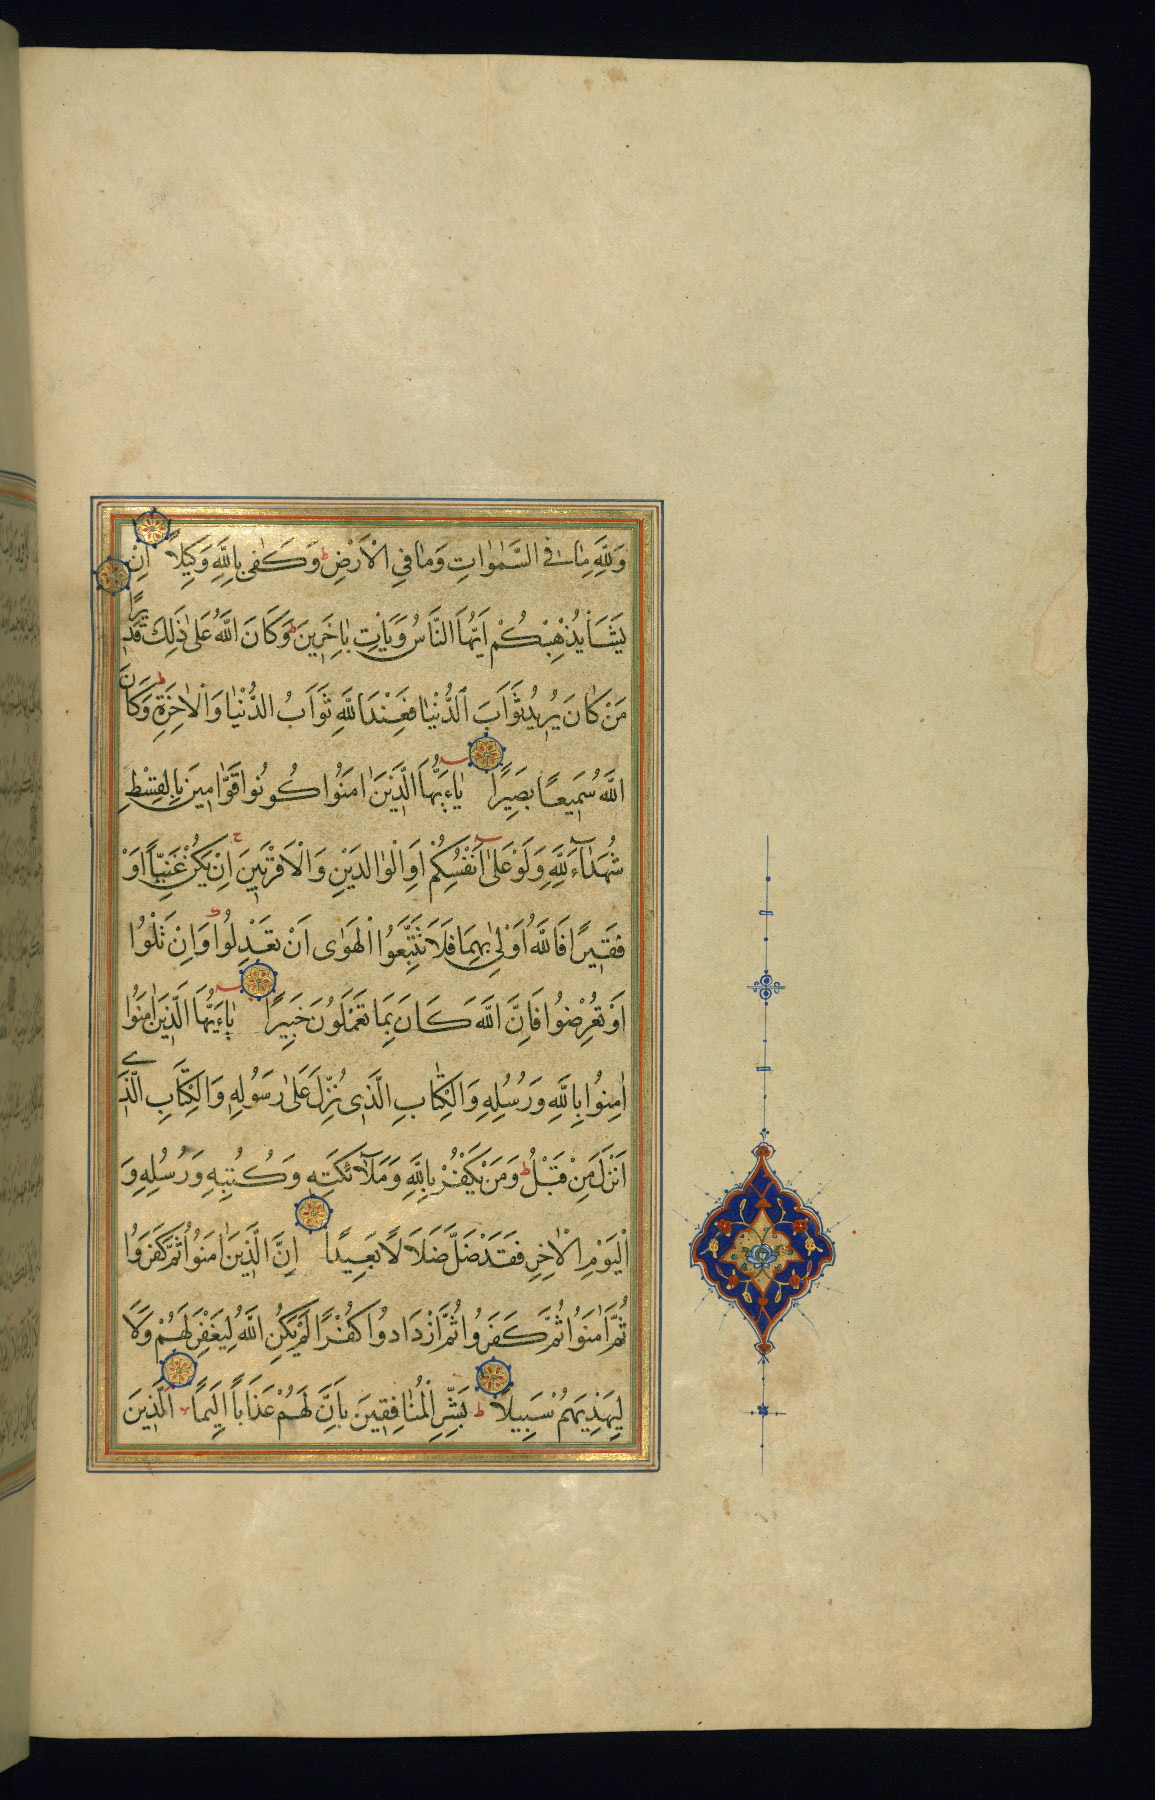 وَلِلَّهِ مَا فِي السَّمٰوَاتِ وَمَا فِي الْاَرْضِ ط وَكَفٰى بِاللَّهِ وَكِيلًا اِنْ
يَشَأْ يُذْهِبْكُمْ اَيُّهَا النَّاسُ وَيَأْتِ بِاٰخَرِينَ ط وَكَانَ اللَّهُ عَلٰى ذٰلِكَ قَدِيرًا
مَنْ كَانَ يُرِيدُ ثَوَابَ الدُّنْيَا فَعِنْدَ اللَّهِ ثَوَابُ الدُّنْيَا وَالْاٰخِرَةِ ط وَكَانَ
اللَّهُ سَمِيعًا بَصِيرًا يٰاءَيُّهَا الَّذِينَ اٰمَنُوا كُونُوا قَوَّامِينَ بِالْقِسْطِ
شُهَدَاءَ لِلَّهِ وَلَوْ عَلٰى اَنْفُسِكُمْ اَوِ الْوَالِدَيْنِ وَالْاَقْرَبِينَ ج اِنْ يَكُنْ غَنِيًّا اَوْ
فَقِيرًا فَاللَّهُ اَوْلٰى بِهِمَا فَلَا تَتَّبِعُوا الْهَوٰى اَنْ تَعْدِلُوا ط وَاِنْ تَلْوُا
اَوْ تُعْرِضُوا فَاِنَّ اللَّهَ كَانَ بِمَا تَعْمَلُونَ خَبِيرًا يٰاءَيُّهَا الَّذِينَ اٰمَنُوا
اٰمِنُوا بِاللَّهِ وَرُسُلِهِ وَالْكِتَابِ الَّذِى نُزِّلَ عَلٰى رَسُولِهِ وَالْكِتَابِ الَّذِى
اَنْزَلَ مِنْ قَبْلُ ط وَمَنْ يَكْفُرْ بِاللَّهِ وَمَلَائِكَتِهِ وَكُتُبِهِ وَرُسُلِهِ وَ
الْيَوْمِ الْاٰخِرِ فَقَدْ ضَلَّ ضَلَالًا بَعِيدًا اِنَّ الَّذِينَ اٰمَنُوا ثُمَّ كَفَرُوا
ثُمَّ اٰمَنُوا ثُمَّ كَفَرُوا ثُمَّ ازْدَادُوا كُفْرًا لَمْ يَكُنِ اللَّهُ لِيَغْفِرَ لَهُمْ وَلَا
لِيَهْدِيَهُمْ سَبِيلًا ط بَشِّرِ الْمُنَافِقِينَ بِاَنَّ لَهُمْ عَذَابًا اَلِيمًا اَلَّذِينَ